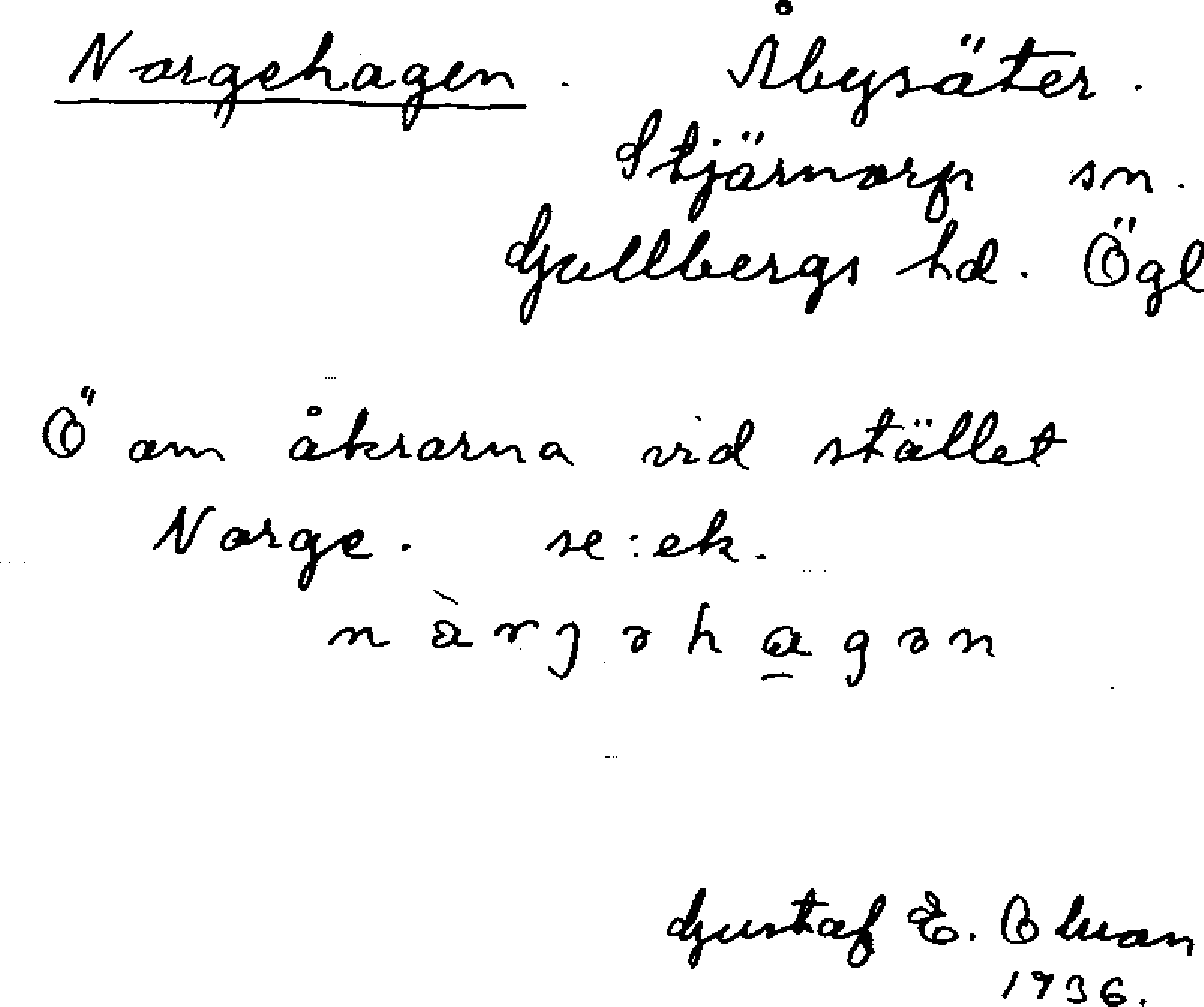 Norgehagen. Åbysäter.
Stjärnorp sn.
Gullbergs hd. Ögl
Ö om åkrarna vid stället
Norge. se: ek.
nàrjəhagən
Gustaf E. Olsson
1936.